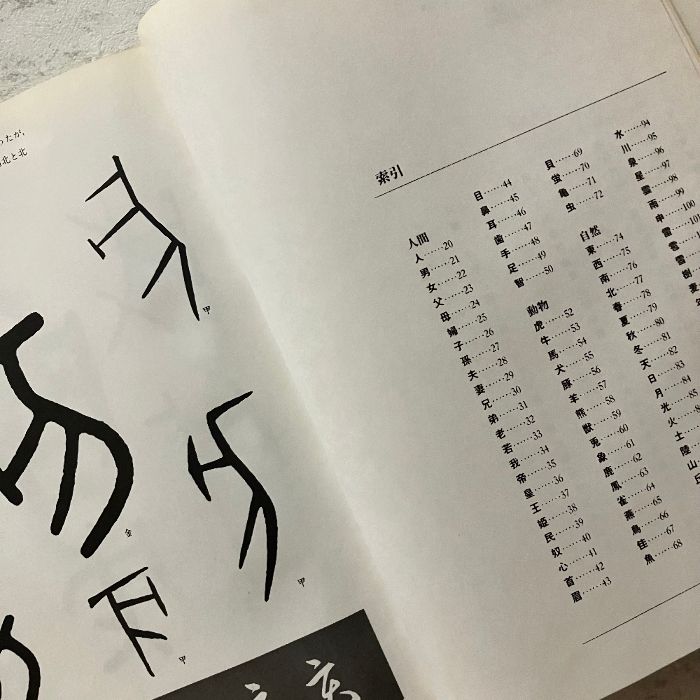 ったが,
北と北
甲
金
甲
甲
索引
人間
人……20
男……21
女……22
父……23
母……24
婦……25
子……26
孫……27
夫……28
妻……29
兄……30
弟……31
老……32
若……33
我……34
帝……35
皇……36
王……37
姫……38
民……39
奴……40
心……41
首……42
眉……43
目……44
鼻……45
耳……46
歯……47
手……48
足……49
智……50
動物
虎……52
牛……53
馬……54
犬……55
豚……56
羊……57
熊……58
獣……59
兎……60
象……61
鹿……62
鳳……63
雀……64
燕……65
鳥……66
隹……67
魚……68
貝……69
蛍……70
亀……71
虫……72
自然
東……74
西……75
南……76
北……77
春……78
夏……79
秋……80
冬……81
天……82
日……83
月……84
光……85
火……8
土……
陸……
山…
丘
水……94
川……95
泉……96
星……97
……98
雨……99
申……100
……101
雪……1